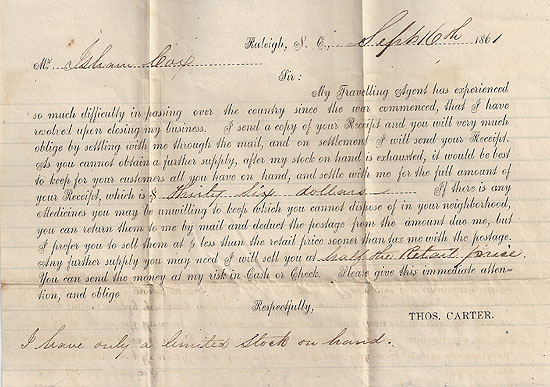 Raleigh, N. C., Sept 16th 1861
Mr. Isham Cox
Sir:
My Travelling Agent has experienced
so much difficulty in passing over the country since the war commenced, that I have
resolved upon closing my business. I send a copy of your Receipt and you will very much
oblige by settling with me through the mail, and on settlement I will send your Receipt.
As you cannot obtain a further supply, after my stock on hand is exhausted, it would be best
to keep for your customers all you have on hand, and settle with me for the full amount of
your Receipt, which is $ Thirty Six dollars If there is any
Medicines you may be unwilling to keep which you cannot dispose of in your neighborhood,
you can return them to me by mail and deduct the postage from the amount due me, but
I prefer you to sell them at less than the retail price sooner than tax me with the postage.
Any further supply you may need I will sell you at half the Retail price.
You can send the money at my risk in Cash or Check. Please give this immediate atten-
tion, and oblige
Respectfully,
THOS. CARTER.
I have only a limited Stock on hand.